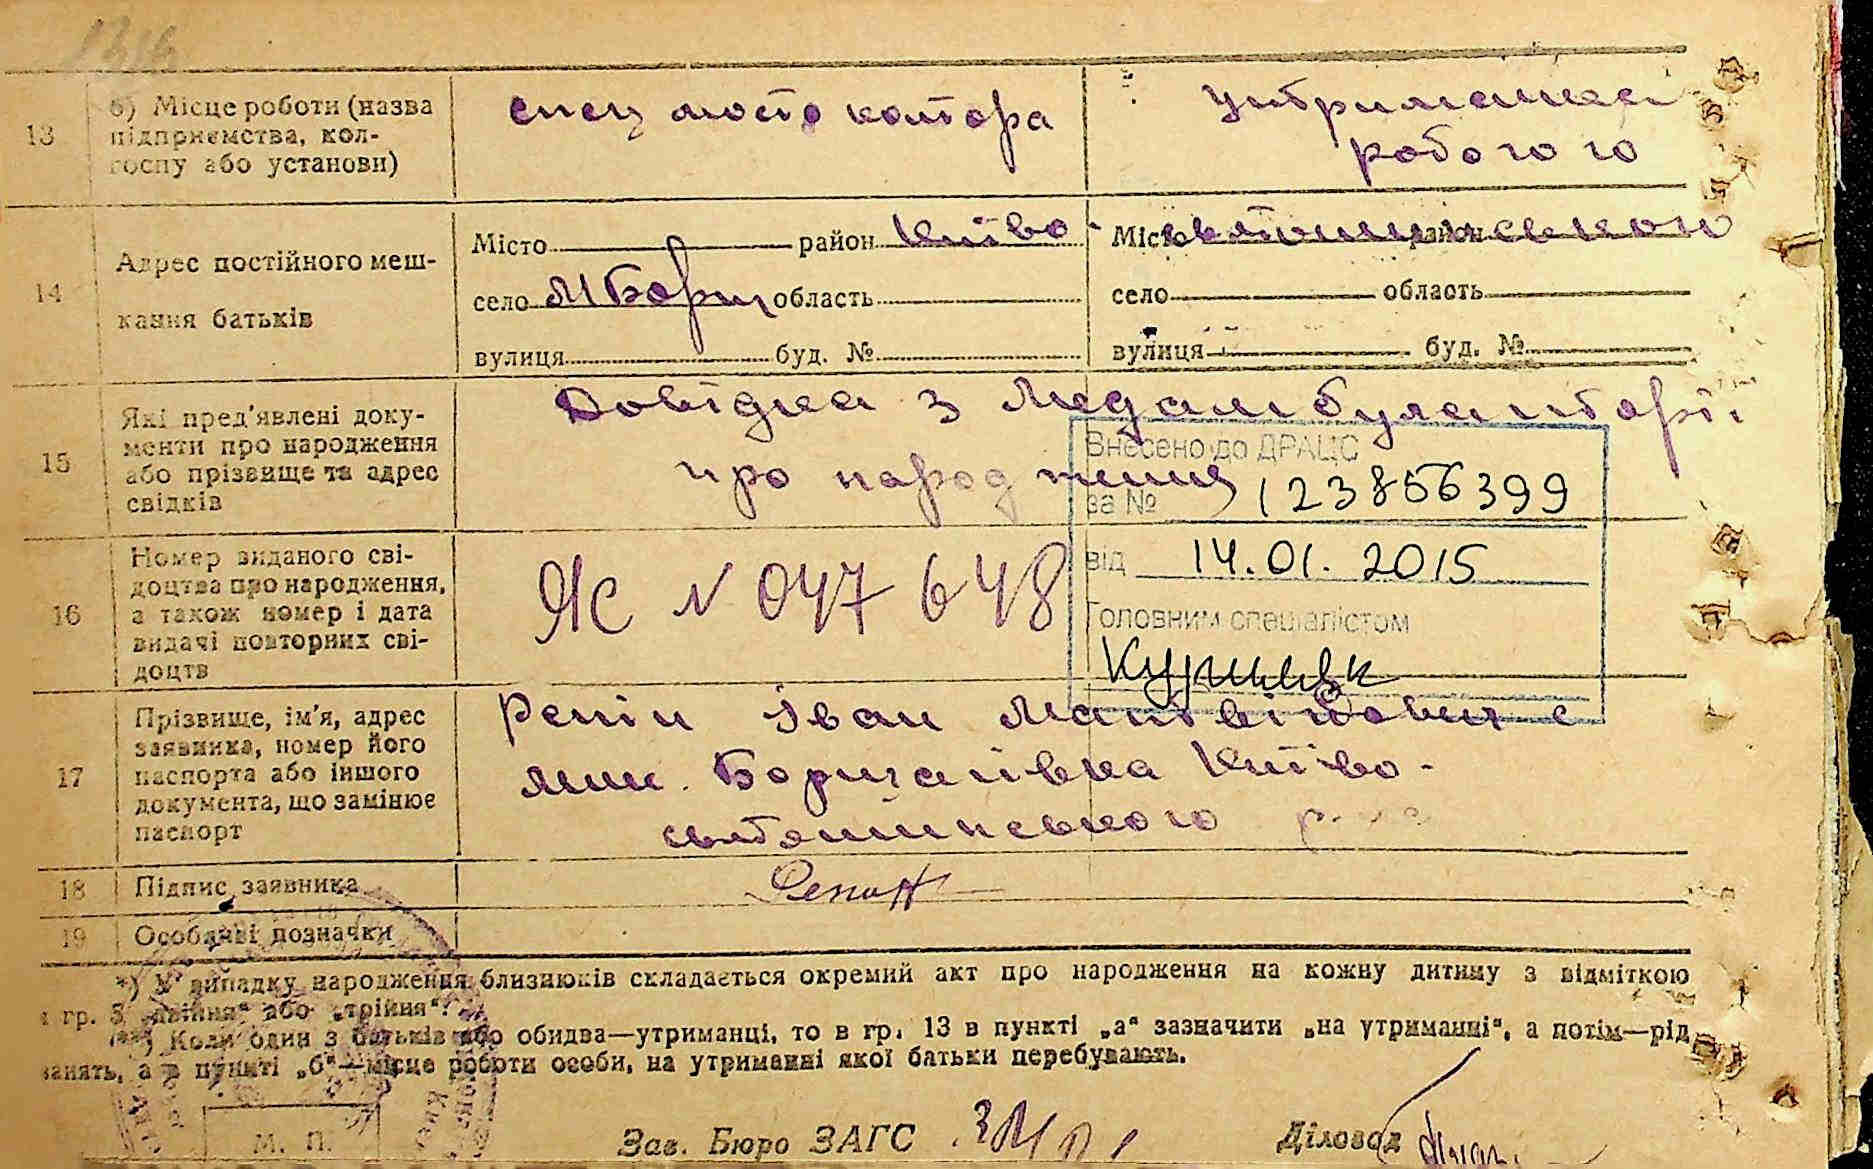 1316
13 б) Місце роботи (назва підприємства, колгоспу або установи)
спец мосто контора
утриманка
робочого
14 Адрес постійного мешкання батьків
Місто район Київо-
село М Борщ область
вулиця буд. №
Місто святошинського район
село область
вулиця буд. №
15 Які пред'явлені документи про народження або прізвище та адрес свідків
Довідка з Медамбулаторії
про народження
Внесено до ДРАЦС
за № 123856399
від 14.01.2015
Головним спеціалістом
16 Номер виданого свідоцтва про народження, а також номер і дата видачі повторних свідоцтв
ЯС N 047648
17 Прізвище, ім'я, адрес заявника, номер його паспорта або іншого документа, що замінює паспорт
Репін Іван Матвійович с
Мик. Борщагівка Київо-
святошинського
18 Підпис заявника
19 Особливі дозначки
*) У випадку народження близнюків складається окремий акт про народження на кожну дитину з відміткою
в гр. 3 „двійня“ або „трійня“.
**) Коли один з батьків або обидва—утриманці, то в гр. 13 в пункті „а“ зазначити „на утриманні“, а потім—рід
занять, а в пункті „б“—місце роботи особи, на утриманні якої батьки перебувають.
М. П.
Зав. Бюро ЗАГС
Діловод